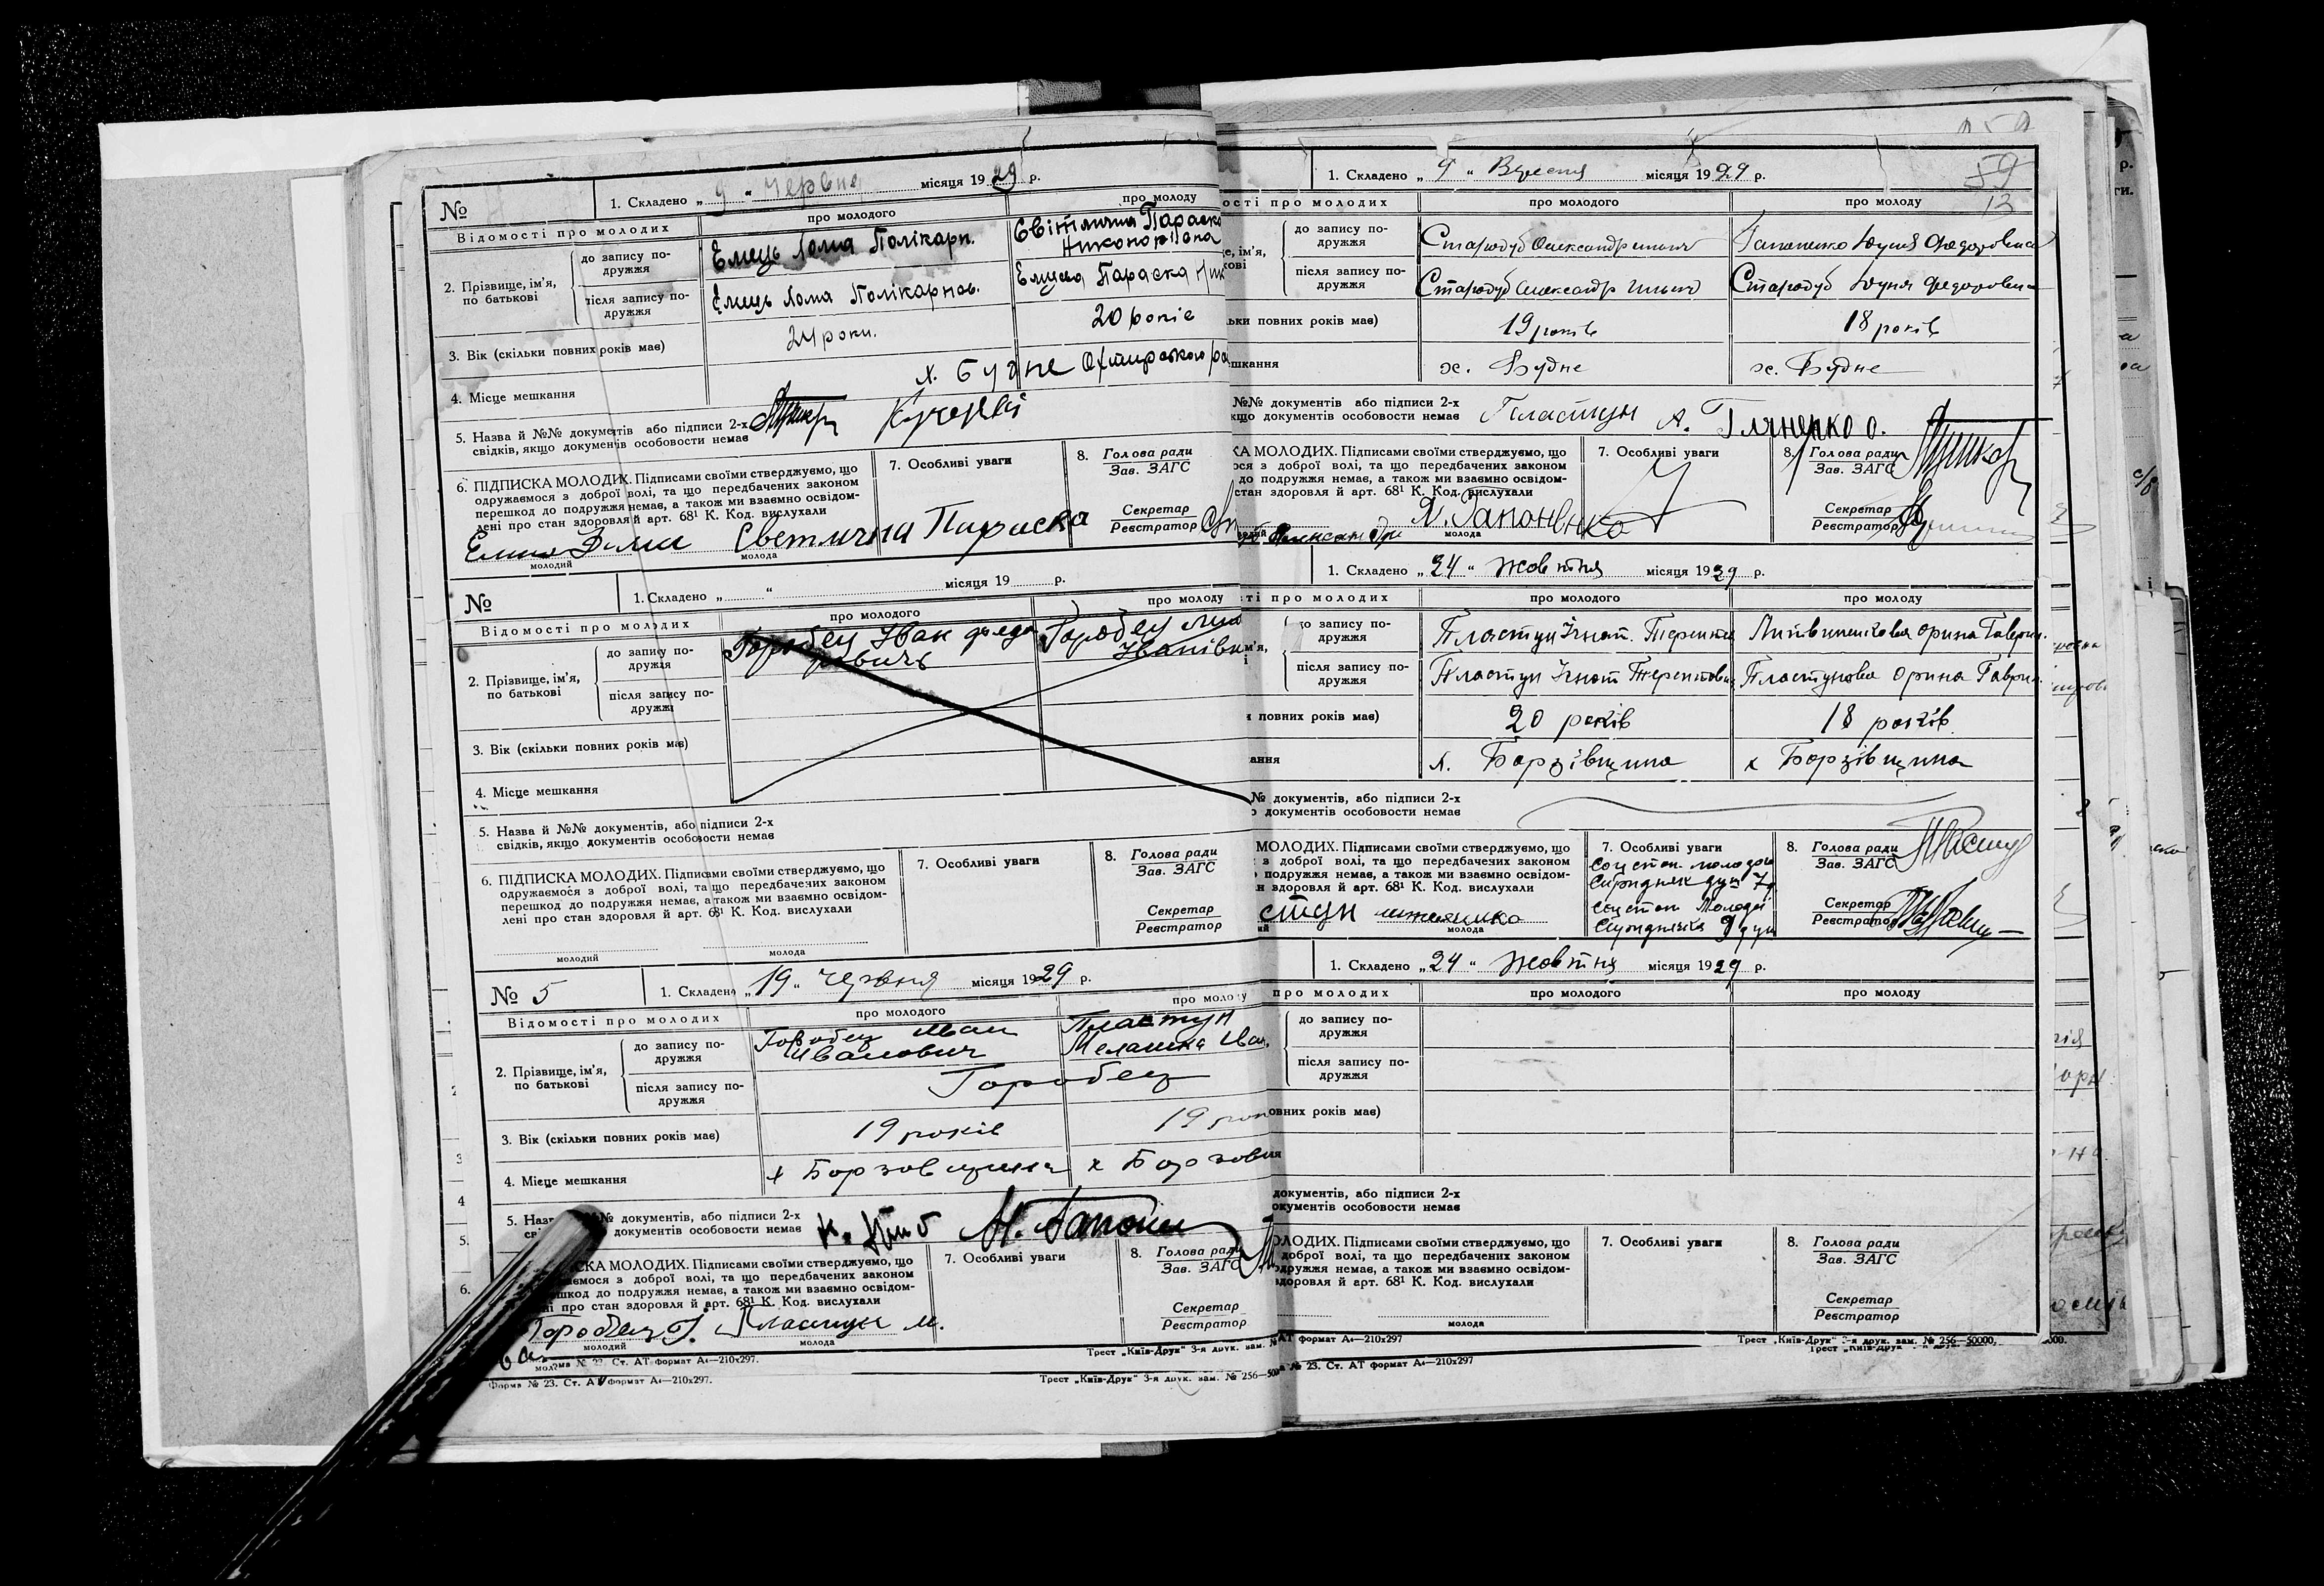 №
1. Складено „ 9 " Червня місяця 1929 р.
Відомості про молодих
про молодого
про молоду
2. Прізвище, ім'я,
по батькові
до запису по-
дружжя
Емець Хома Полікарп.
Світлична Параска
Никонорівна
після запису по-
дружжя
Емець Хома Полікарпов.
Емцева Параска Ник
3. Вік (скільки повних років має)
24 роки.
20 років
4. Місце мешкання
х. Будне Охтирського ра
5. Назва й №№ документів або підписи 2-х
свідків, якщо документів особовости немає
6. ПІДПИСКА МОЛОДИХ. Підписами своїми стверджуємо, що
одружаємося з доброї волі, та що передбачених законом
перешкод до подружжя немає, а також ми взаємно освідом-
лені про стан здоровля й арт. 68¹ К. Код. вислухали
Светлична Параска
молодий
молода
7. Особливі уваги
8. Голова ради
Зав. ЗАГС
Секретар
Реєстратор
№
1. Складено „ " місяця 19 р.
Відомості про молодих
про молодого
про молоду
2. Прізвище, ім'я,
по батькові
до запису по-
дружжя
Горобец Іван Федо
ровичь
Горобец
Іванівн
після запису по-
дружжя
3. Вік (скільки повних років має)
4. Місце мешкання
5. Назва й №№ документів, або підписи 2-х
свідків, якщо документів особовости немає
6. ПІДПИСКА МОЛОДИХ. Підписами своїми стверджуємо, що
одружаємося з доброї волі, та що передбачених законом
перешкод до подружжя немає, а також ми взаємно освідом-
лені про стан здоровля й арт. 68¹ К. Код. вислухали
молодий
молода
7. Особливі уваги
8. Голова ради
Зав. ЗАГС
Секретар
Реєстратор
№ 5
1. Складено „ 19 " червня місяця 1929 р.
Відомості про молодих
про молодого
про молоду
2. Прізвище, ім'я,
по батькові
до запису по-
дружжя
Горобец Иван
Иванович
Пластун
Мелашка Иван.
після запису по-
дружжя
Горобец
3. Вік (скільки повних років має)
19 років
19 рок
4. Місце мешкання
х Борзовщина
х Борзовщ
5. Наз №№ документів, або підписи 2-х
документів особовости немає
СКА МОЛОДИХ. Підписами своїми стверджуємо, що
ємося з доброї волі, та що передбачених законом
шкод до подружжя немає, а також ми взаємно освідом-
і про стан здоровля й арт. 68¹ К. Код. вислухали
Горобец І. Пластун М.
молодий
молода
7. Особливі уваги
8. Голова ради
Зав. ЗАГС
Секретар
Реєстратор
№ 23. Ст. АТ формат А₄—210х297.
Трест „Київ-Друк" 3-я друк. зам. №
Форма № 23. Ст. АТ формат А₄—210х297.
Трест „Київ-Друк" 3-я друк. зам. № 256—50
59
13
1. Складено „ 9 " Вересня місяця 1929 р.
ості про молодих
про молодого
про молоду
до запису по-
дружжя
Стародуб Олександр
Гапоненко Дуня Федоровна
після запису по-
дружжя
Стародуб Олександр
Стародуб Дуня Федоровна
ьки повних років має)
19 років
18 років
шкання
х. Будне
х. Будне
№№ документів або підписи 2-х
кщо документів особовости немає
Пластун А. Гляненко О.
КА МОЛОДИХ. Підписами своїми стверджуємо, що
ося з доброї волі, та що передбачених законом
до подружжя немає, а також ми взаємно освідом-
стан здоровля й арт. 68¹ К. Код. вислухали
Гапоненко
молода
7. Особливі уваги
8. Голова ради
Зав. ЗАГС
Секретар
Реєстратор
1. Складено „ 24 " Жовтня місяця 1929 р.
ті про молодих
про молодого
про молоду
до запису по-
дружжя
Пластун Ігнат.
Литвиненкова Орина Гаврил.
після запису по-
дружжя
Пластун Ігнат Терентович
Пластунова Орина Гаврил.
повних років має)
20 років
18 років
ання
х. Борзівщина
х Борзівщина
№ документів, або підписи 2-х
документів особовости немає
МОЛОДИХ. Підписами своїми стверджуємо, що
з доброї волі, та що передбачених законом
подружжя немає, а також ми взаємно освідом-
н здоровля й арт. 68¹ К. Код. вислухали
стун
молода
7. Особливі уваги
Соцстан молодого
Середняк душ 7
Соцстан Молодої
Середнячка 9 душ
8. Голова ради
Зав. ЗАГС
Секретар
Реєстратор
1. Складено „ 24 " Жовтня місяця 1929 р.
про молодих
про молодого
про молоду
до запису по-
дружжя
після запису по-
дружжя
овних років має)
документів, або підписи 2-х
окументів особовости немає
ОЛОДИХ. Підписами своїми стверджуємо, що
доброї волі, та що передбачених законом
одружжя немає, а також ми взаємно освідом-
здоровля й арт. 68¹ К. Код. вислухали
молода
7. Особливі уваги
8. Голова ради
Зав. ЗАГС
Секретар
Реєстратор
АТ формат А₄—210х297
Трест „Київ-Друк" 3-я друк. зам. № 256—50000.
№ 23. Ст. АТ формат А₄—210х297